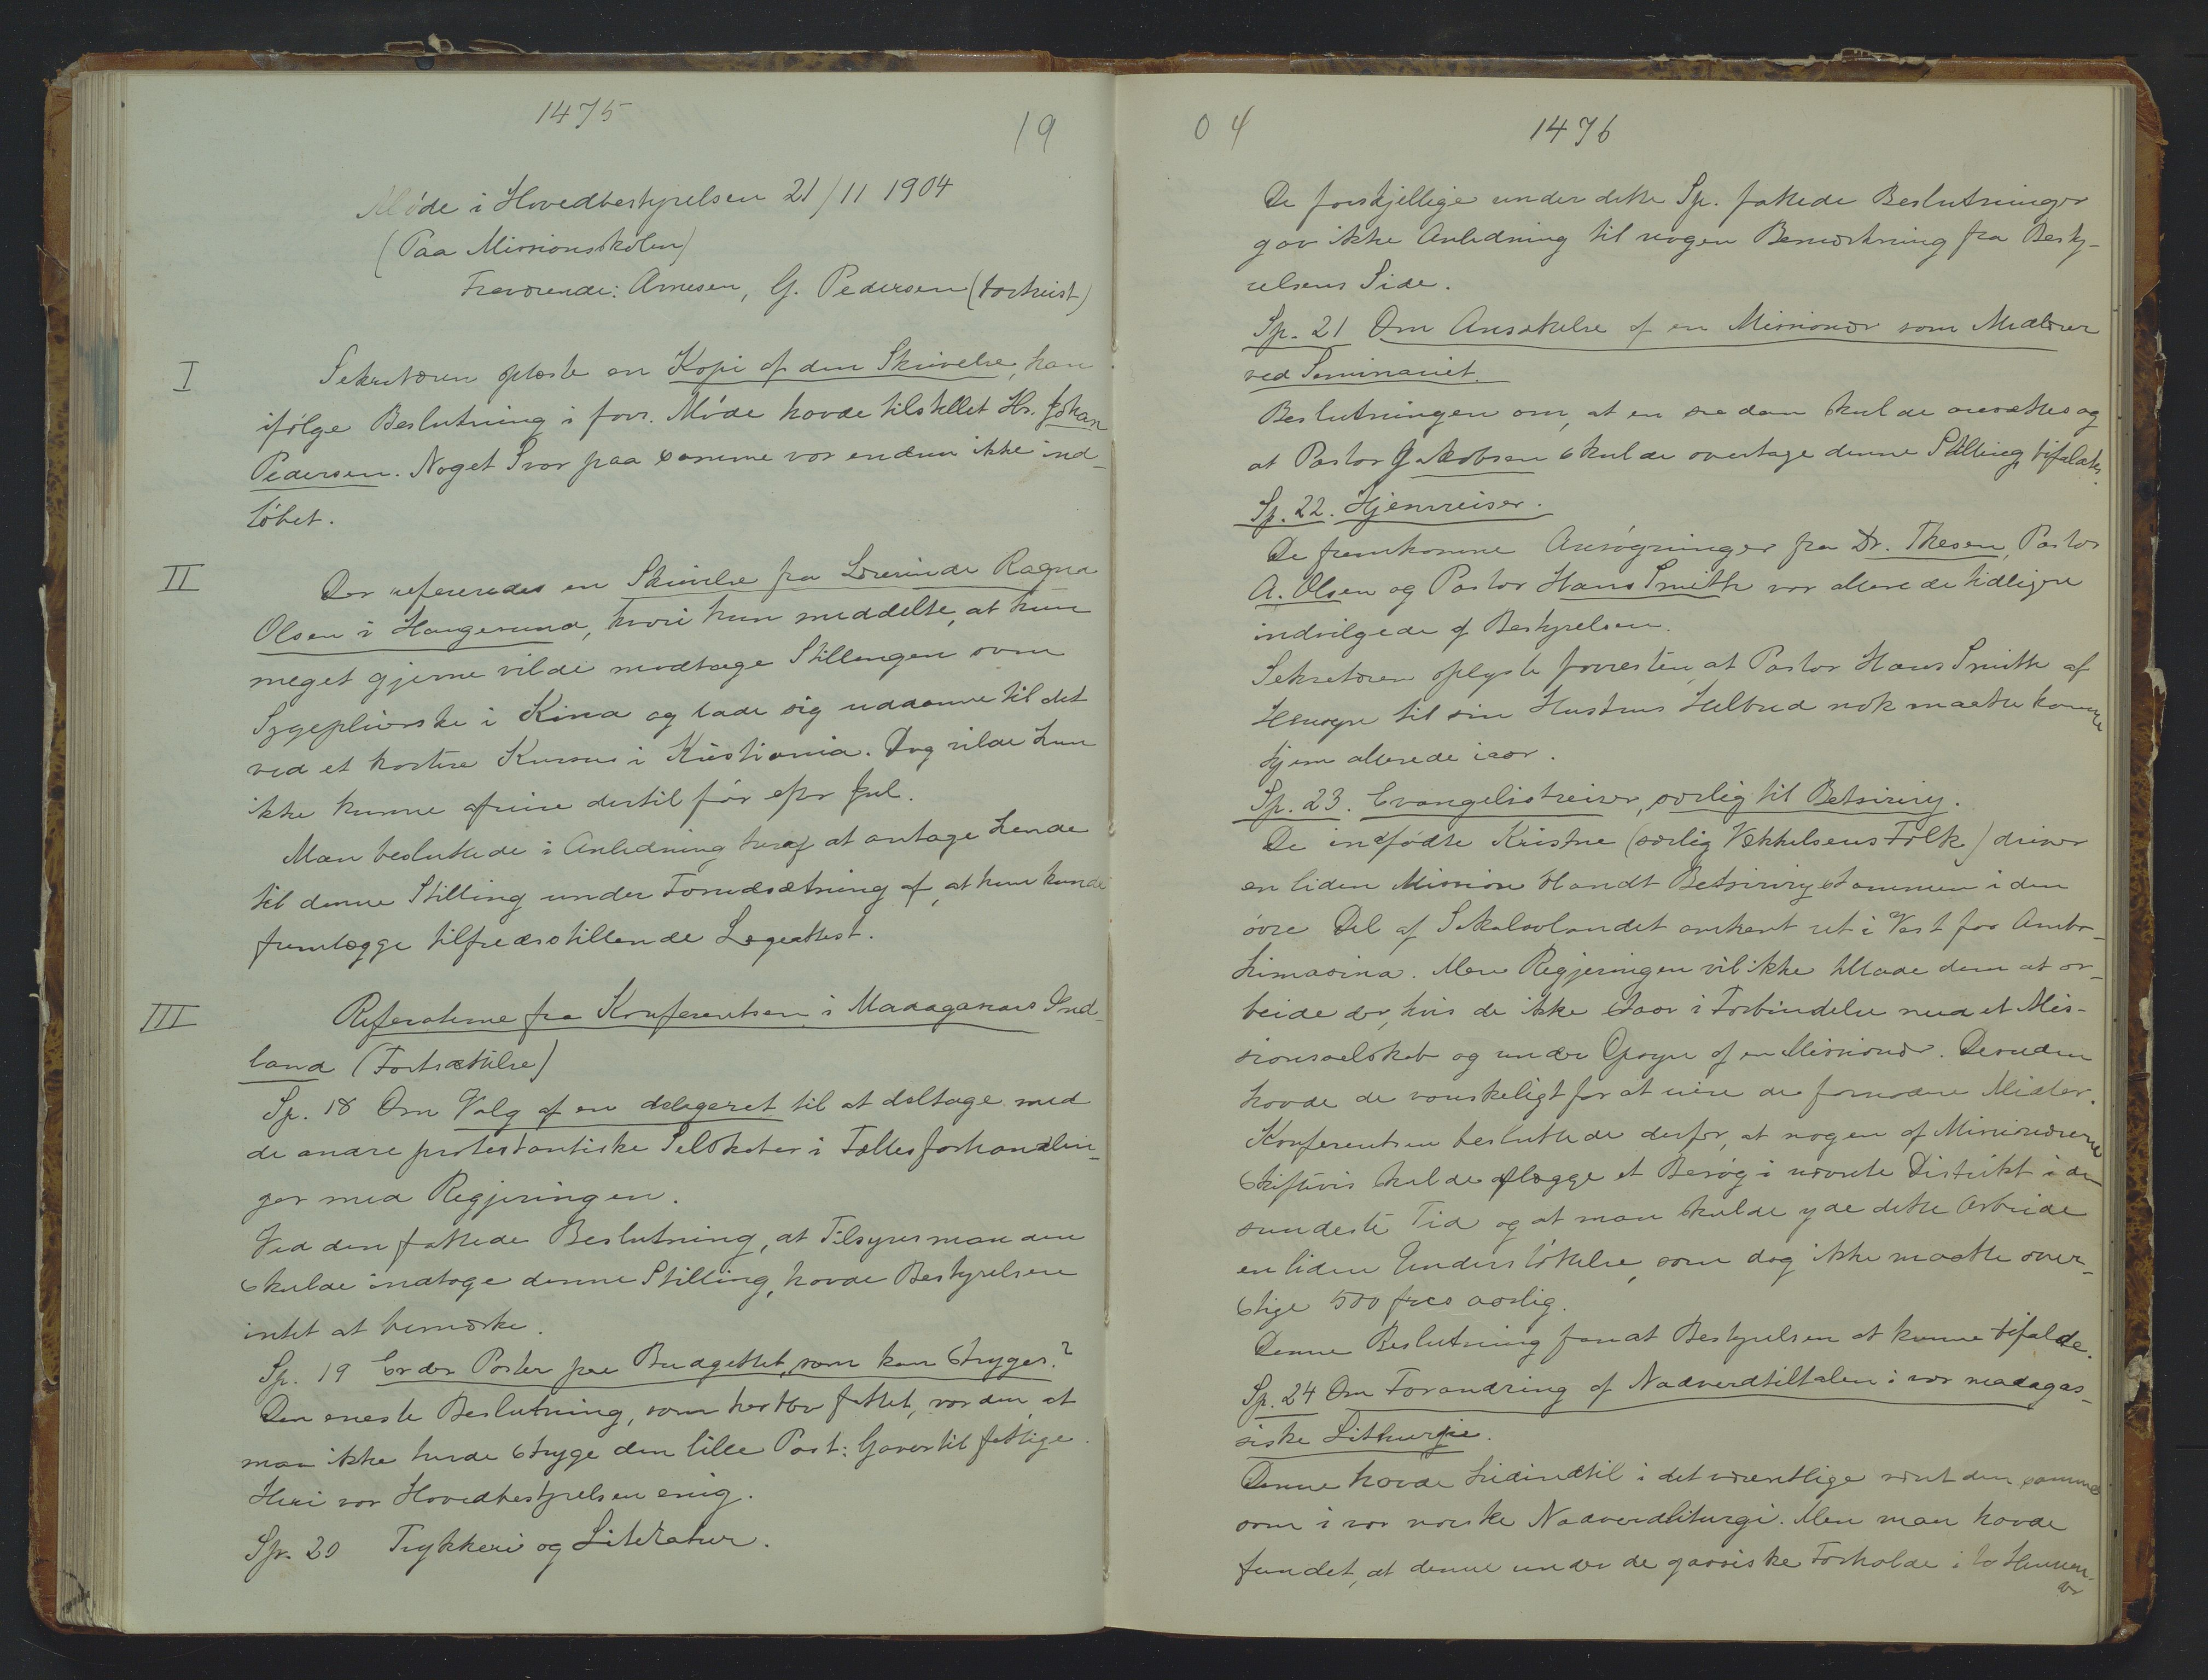 1475
19
Møde i Hovedbestyrelsen 21/11 1904
(Paa Missionsskolen)
Fraværende: Arnesen, G. Pedersen (bortreist)
I
Sekretæren oplæste en Kopi af den Skrivelse, han
ifølge Beslutning i forr. Møde havde tilstillet Hr. Johan
Pedersen. Noget Svar paa samme var endnu ikke ind-
løbet.
II
Der refereredes en Skrivelse fra Lærerinde Ragna
Olsen i Haugesund, hvori hun meddelte, at hun
meget gjerne vilde modtage Stillingen som
Sygepleierske i Kina og lade sig uddanne til det
ved et kortere Kursus i Kristiania. Dog vilde hun
ikke kunne afreise dertil før efter Jul.
Man besluttede i Anledning heraf at antage hende
til denne Stilling under Forudsætning af, at hun kunde
fremlægge tilfredsstillende Lægeattest.
III
Referaterne fra Konferentsen i Madagaskars Ind-
land (Fortsættelse)
Sp. 18 Om Valg af en delegeret til at deltage med
de andre protestantiske Selskaber i Fællesforhandlin-
ger med Regjeringen.
Ved den fattede Beslutning, at Tilsynsmanden
skulde indtage denne Stilling, havde Bestyrelsen
intet at bemærke.
Sp. 19 Er der Poster paa Budgettet, som kan stryges?
Den eneste Beslutning, som her blev fattet, var den, at
man ikke turde stryge den lille Post: Gaver til fattige.
Heri var Hovedbestyrelsen enig.
Sp. 20 Trykkeri og Literatur.
04
1476
De forskjellige under dette Sp. fattede Beslutninger
gav ikke Anledning til nogen Bemærkning fra Besty-
relsens Side.
Sp. 21 Om Ansættelse af en Missionær som Medlærer
ved Seminariet.
Beslutningen om, at en saadan skulde ansættes og
at Pastor Jakobsen skulde overtage denne Stilling, bifaldtes.
Sp. 22. Hjemreiser.
De fremkomne Ansøgninger fra Dr. Thesen, Pastor
A. Olsen og Pastor Hans Smith var allerede tidligere
indvilgede af Bestyrelsen.
Sekretæren oplyste forresten, at Pastor Hans Smith af
Hensyn til sin Hustrus Helbred nok maatte komme
hjem allerede iaar.
Sp. 23. Evangelistreiser, særlig til Betsiriry.
De indfødte Kristne (særlig Vækkelsens Folk) driver
en liden Mission blandt Betsiriry Stammen i den
øvre Del af Sakalavlandet omtrent ret i Vest for Ambo-
himasina. Men Regjeringen vil ikke tillade dem at ar-
beide der, hvis de ikke staar i Forbindelse med et Mis-
sionsselskab og under Opsyn af en Missionær. Desuden
havde de vanskeligt for at reise de fornødne Midler.
Konferentsen besluttede derfor, at nogen af Missionærerne
skiftevis skulde aflægge et Besøg i nævnte Distrikt i den
sundeste Tid og at man skulde yde dette Arbeide
en liden Understøttelse, som dog ikke maatte over-
stige 500 frcs aarlig.
Denne Beslutning fandt Bestyrelsen at kunne bifalde.
Sp. 24 Om Forandring af Nadverdtiltalen i vor madagas-
siske Lithurgie.
Denne havde hidindtil i det væsentlige været den samme
som i vor norske Nadverdliturgi. Men man havde
fundet, at denne under de gassiske Forholde i to Henseen-
der